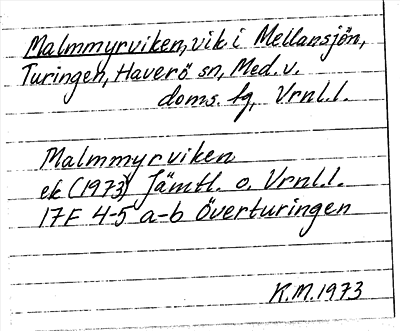 Malmmyrviken, vik i Mellansjön,
Turingen, Haverö sn, Med. v.
doms. fg, Vrnl.l.
Malmmyrviken
ek (1973) Jämtl. o. Vrnl.l.
17F 4-5 a-b Överturingen
K.M. 1973